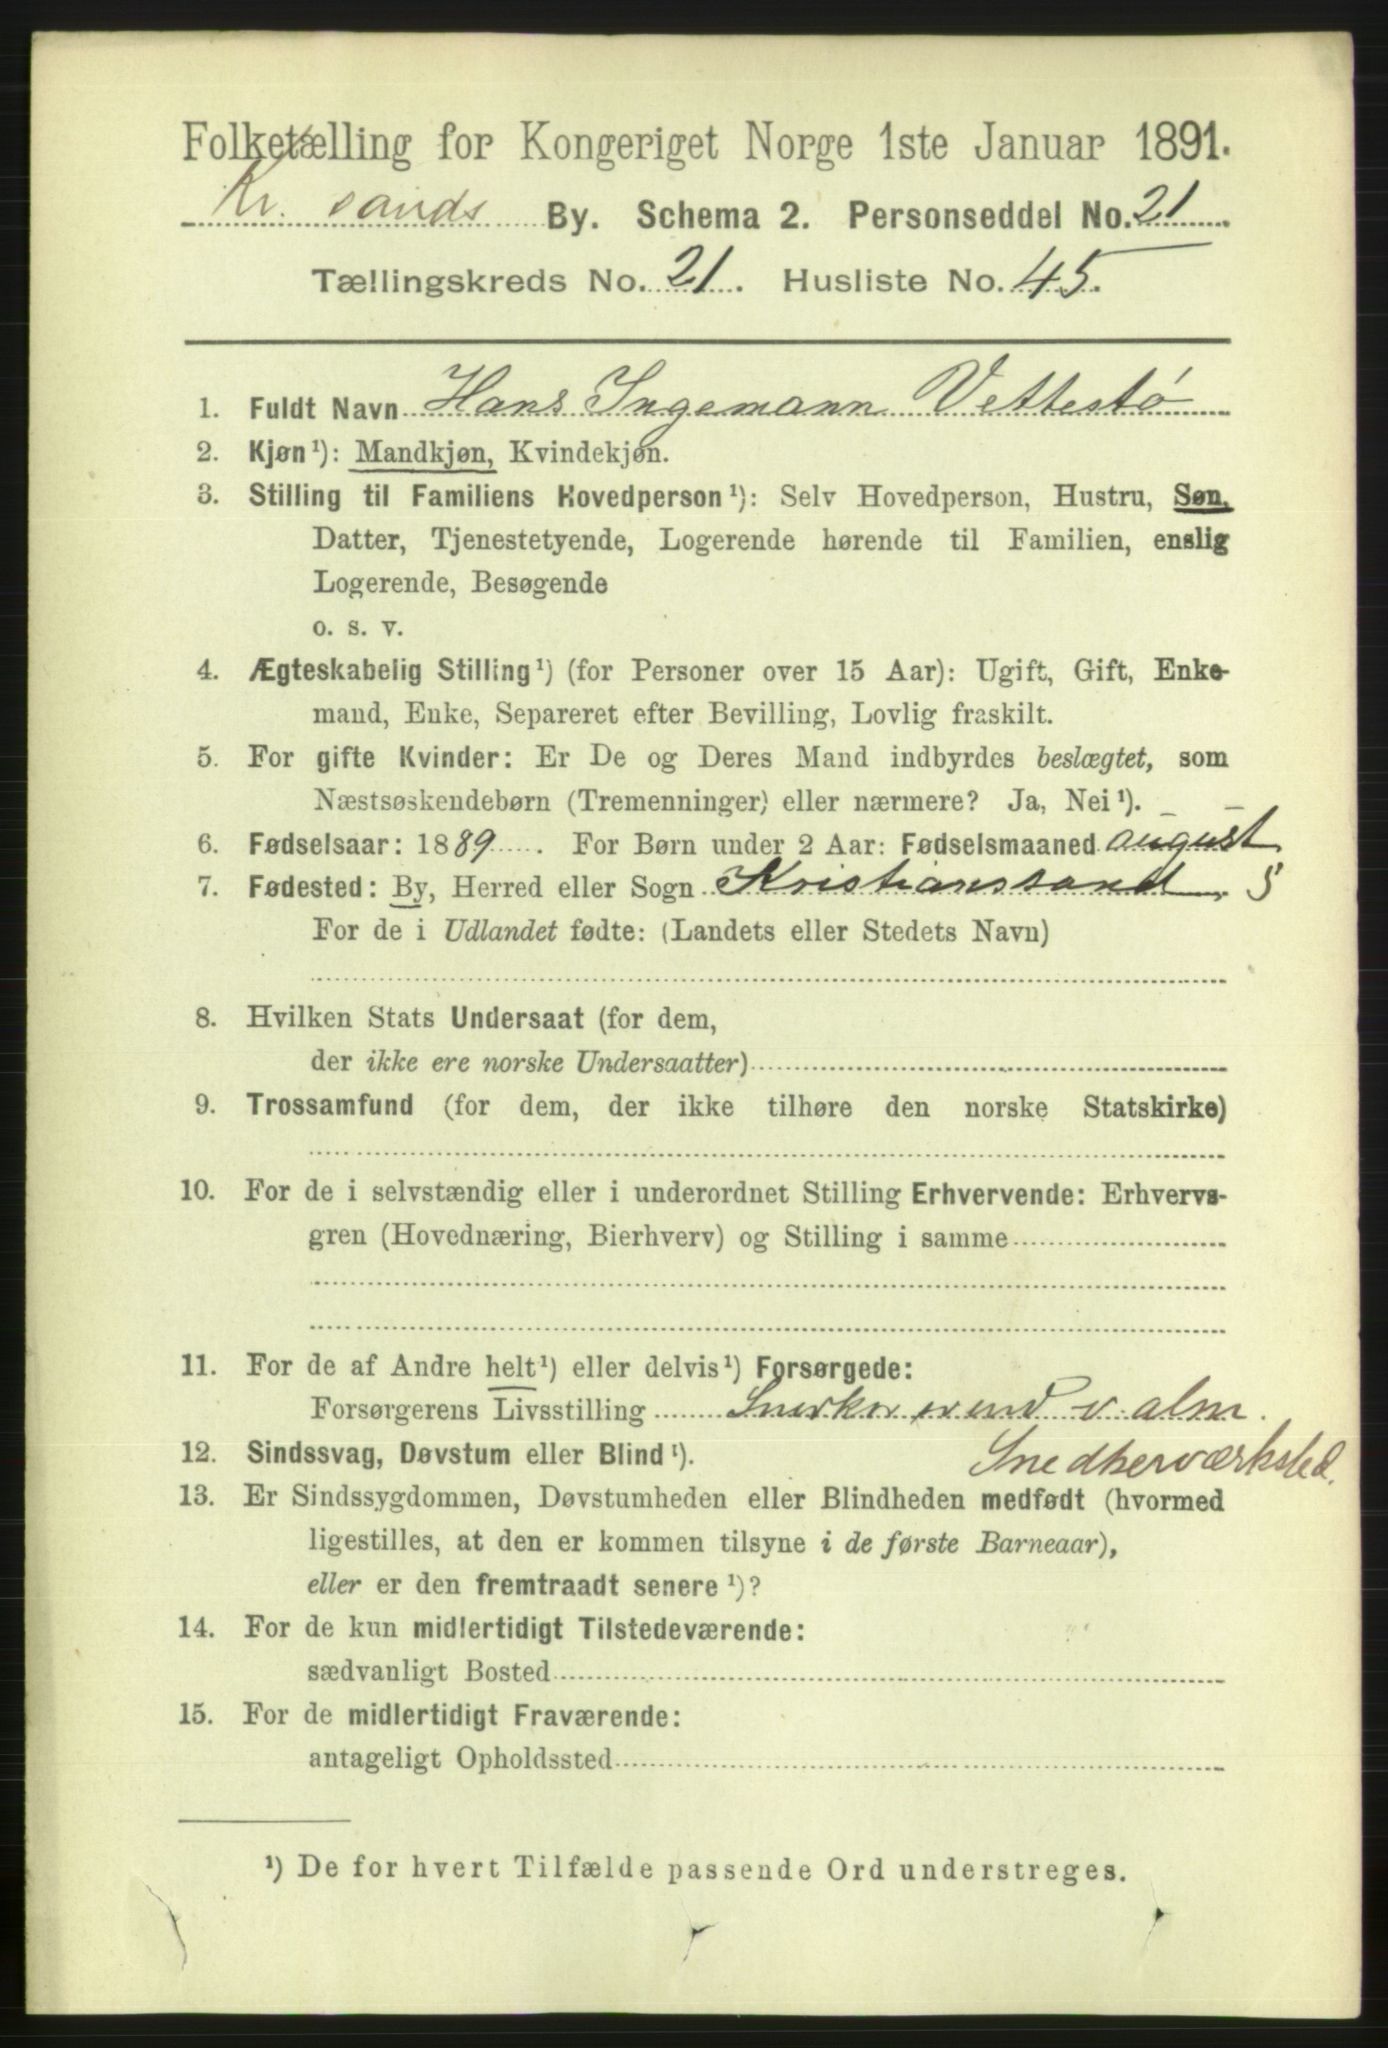 Folketælling for Kongeriget Norge 1ste Januar 1891.
Kr. sands By. Schema 2. Personseddel No. 21.
Tællingskreds No. 21. Husliste No. 45.
1. Fuldt Navn Hans Ingemann Vettestø
2. Kjøn¹): Mandkjøn, Kvindekjøn.
3. Stilling til Familiens Hovedperson¹): Selv Hovedperson, Hustru, Søn,
Datter, Tjenestetyende, Logerende hørende til Familien, enslig
Logerende, Besøgende
o. s. v.
4. Ægteskabelig Stilling¹) (for Personer over 15 Aar): Ugift, Gift, Enke-
mand, Enke, Separeret efter Bevilling, Lovlig fraskilt.
5. For gifte Kvinder: Er De og Deres Mand indbyrdes beslægtet, som
Næstsøskendebørn (Tremenninger) eller nærmere? Ja, Nei¹).
6. Fødselsaar: 1889. For Børn under 2 Aar: Fødselsmaaned august
7. Fødested: By, Herred eller Sogn Kristianssand.
For de i Udlandet fødte: (Landets eller Stedets Navn)
8. Hvilken Stats Undersaat (for dem,
der ikke ere norske Undersaatter)
9. Trossamfund (for dem, der ikke tilhøre den norske Statskirke)
10. For de i selvstændig eller i underordnet Stilling Erhvervende: Erhvervs-
gren (Hovednæring, Bierhverv) og Stilling i samme
11. For de af Andre helt¹) eller delvis¹) Forsørgede:
Forsørgerens Livsstilling v. alm.
12. Sindssvag, Døvstum eller Blind¹). Snedkerværksted.
13. Er Sindssygdommen, Døvstumheden eller Blindheden medfødt (hvormed
ligestilles, at den er kommen tilsyne i de første Barneaar),
eller er den fremtraadt senere¹)?
14. For de kun midlertidigt Tilstedeværende:
sædvanligt Bosted
15. For de midlertidigt Fraværende:
antageligt Opholdssted
¹) De for hvert Tilfælde passende Ord understreges.